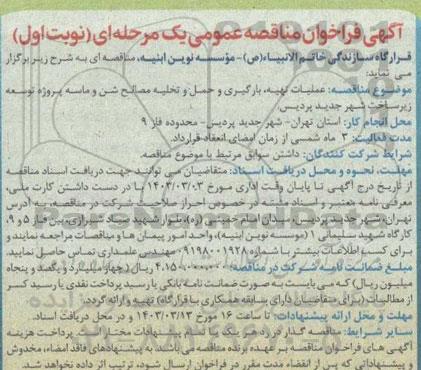 آگهی فراخوان مناقصه عمومی یک مرحله‌ای (نوبت اول)
قرارگاه سازندگی خاتم الانبیاء(ص) - مؤسسه نوین ابنیه، مناقصه ای به شرح زیر برگزار
می نماید:
موضوع مناقصه: عملیات تهیه، بارگیری و حمل و تخلیه مصالح شن و ماسه پروژه توسعه
زیرساخت شهر جدید پردیس
محل انجام کار: استان تهران- شهر جدید پردیس- محدوده فاز ۹
مدت فعالیت: ۳ ماه شمسی از زمان امضای انعقاد قرارداد.
شرایط شرکت کنندگان: داشتن سوابق مرتبط با موضوع مناقصه.
مهلت، نحوه و محل دریافت اسناد: متقاضیان می توانند جهت دریافت اسناد مناقصه
از تاریخ درج آگهی تا پایان وقت اداری مورخ ۱۴۰۳/۰۳/۰۳ با در دست داشتن کارت ملی،
معرفی نامه معتبر و اسناد مثبته در خصوص احراز صلاحیت شرکت در مناقصه، به آدرس
تهران، شهر جدید پردیس، میدان امام خمینی (ره)، بلوار شهید صیاد شیرازی، بین فاز ۵ و ۹،
کارگاه شهید سلیمانی ۱ (موسسه نوین ابنیه)، واحد امور پیمان ها و مناقصات مراجعه نمایند و
برای کسب اطلاعات بیشتر با شماره ۱۹۲۸-۰۹۱۹۸۰ مهندس علمداری تماس حاصل نمایید.
مبلغ ضمانت نامه شرکت در مناقصه: ۴.۱۵۰.۰۰۰.۰۰۰ ریال (چهار میلیارد و یکصد و پنجاه
میلیون ریال) که می بایست به صورت ضمانت نامه بانکی یا رسید پرداخت نقدی یا رسید کسر
از مطالبات (برای متقاضیان دارای سابقه همکاری با قرارگاه) تهیه و ارائه گردد.
مهلت و محل ارائه پیشنهادات: تا ساعت ۱۶ مورخ ۱۴۰۳/۰۳/۱۳ و در محل دریافت اسناد.
سایر شرایط: مناقصه گذار در رد هر یک یا تمام پیشنهادات مختار است. پرداخت هزینه
آگهی های فراخوان مناقصه بر عهده برنده مناقصه می باشد. به پیشنهادهای فاقد امضاء، مخدوش
و پیشنهاداتی که پس از انقضاء مدت مقرر در فراخوان ارسال شود، ترتیب اثر داده نخواهد شد.